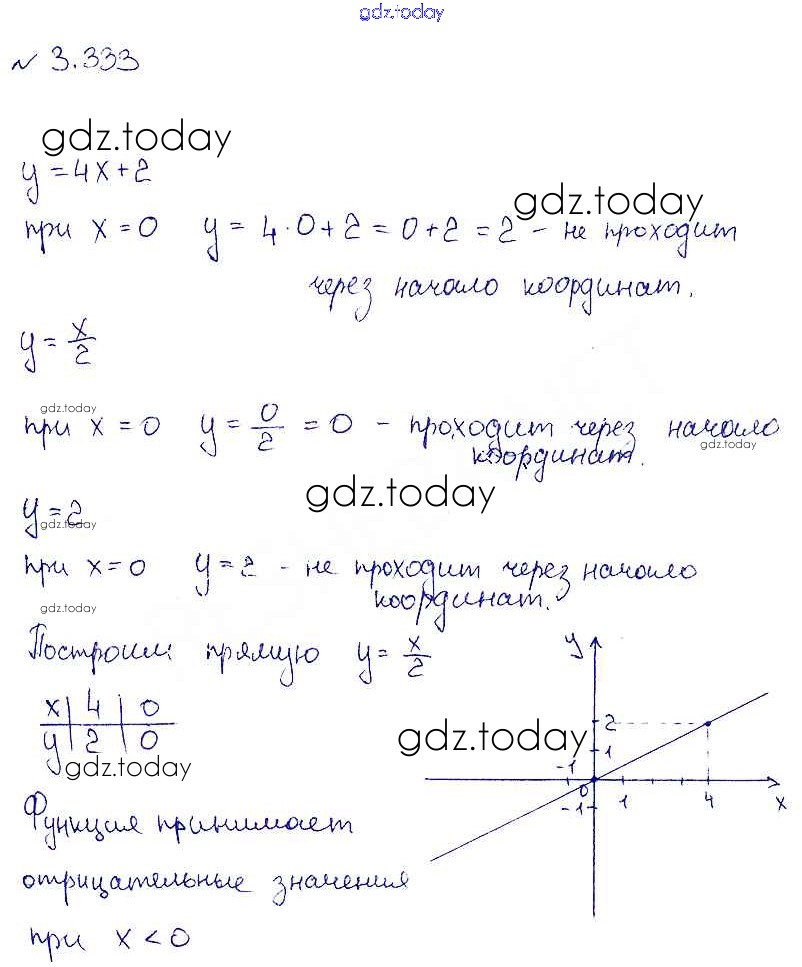 gdz.today
№ 3.333
gdz.today
y = 4x + 2
gdz.today
при x = 0 y = 4 · 0 + 2 = 0 + 2 = 2 - не проходит
через начало координат.
y = x/2
gdz.today
при x = 0 y = 0/2 = 0 - проходит через начало
gdz.today
координат.
gdz.today
y = 2
gdz.today
при x = 0 y = 2 - не проходит через начало
gdz.today
координат.
Построим прямую y = x/2
x | 4 | 0
y | 2 | 0
gdz.today
gdz.today
y
2
1
-1
0
1
4
x
-1
Функция принимает
отрицательные значения
при x < 0